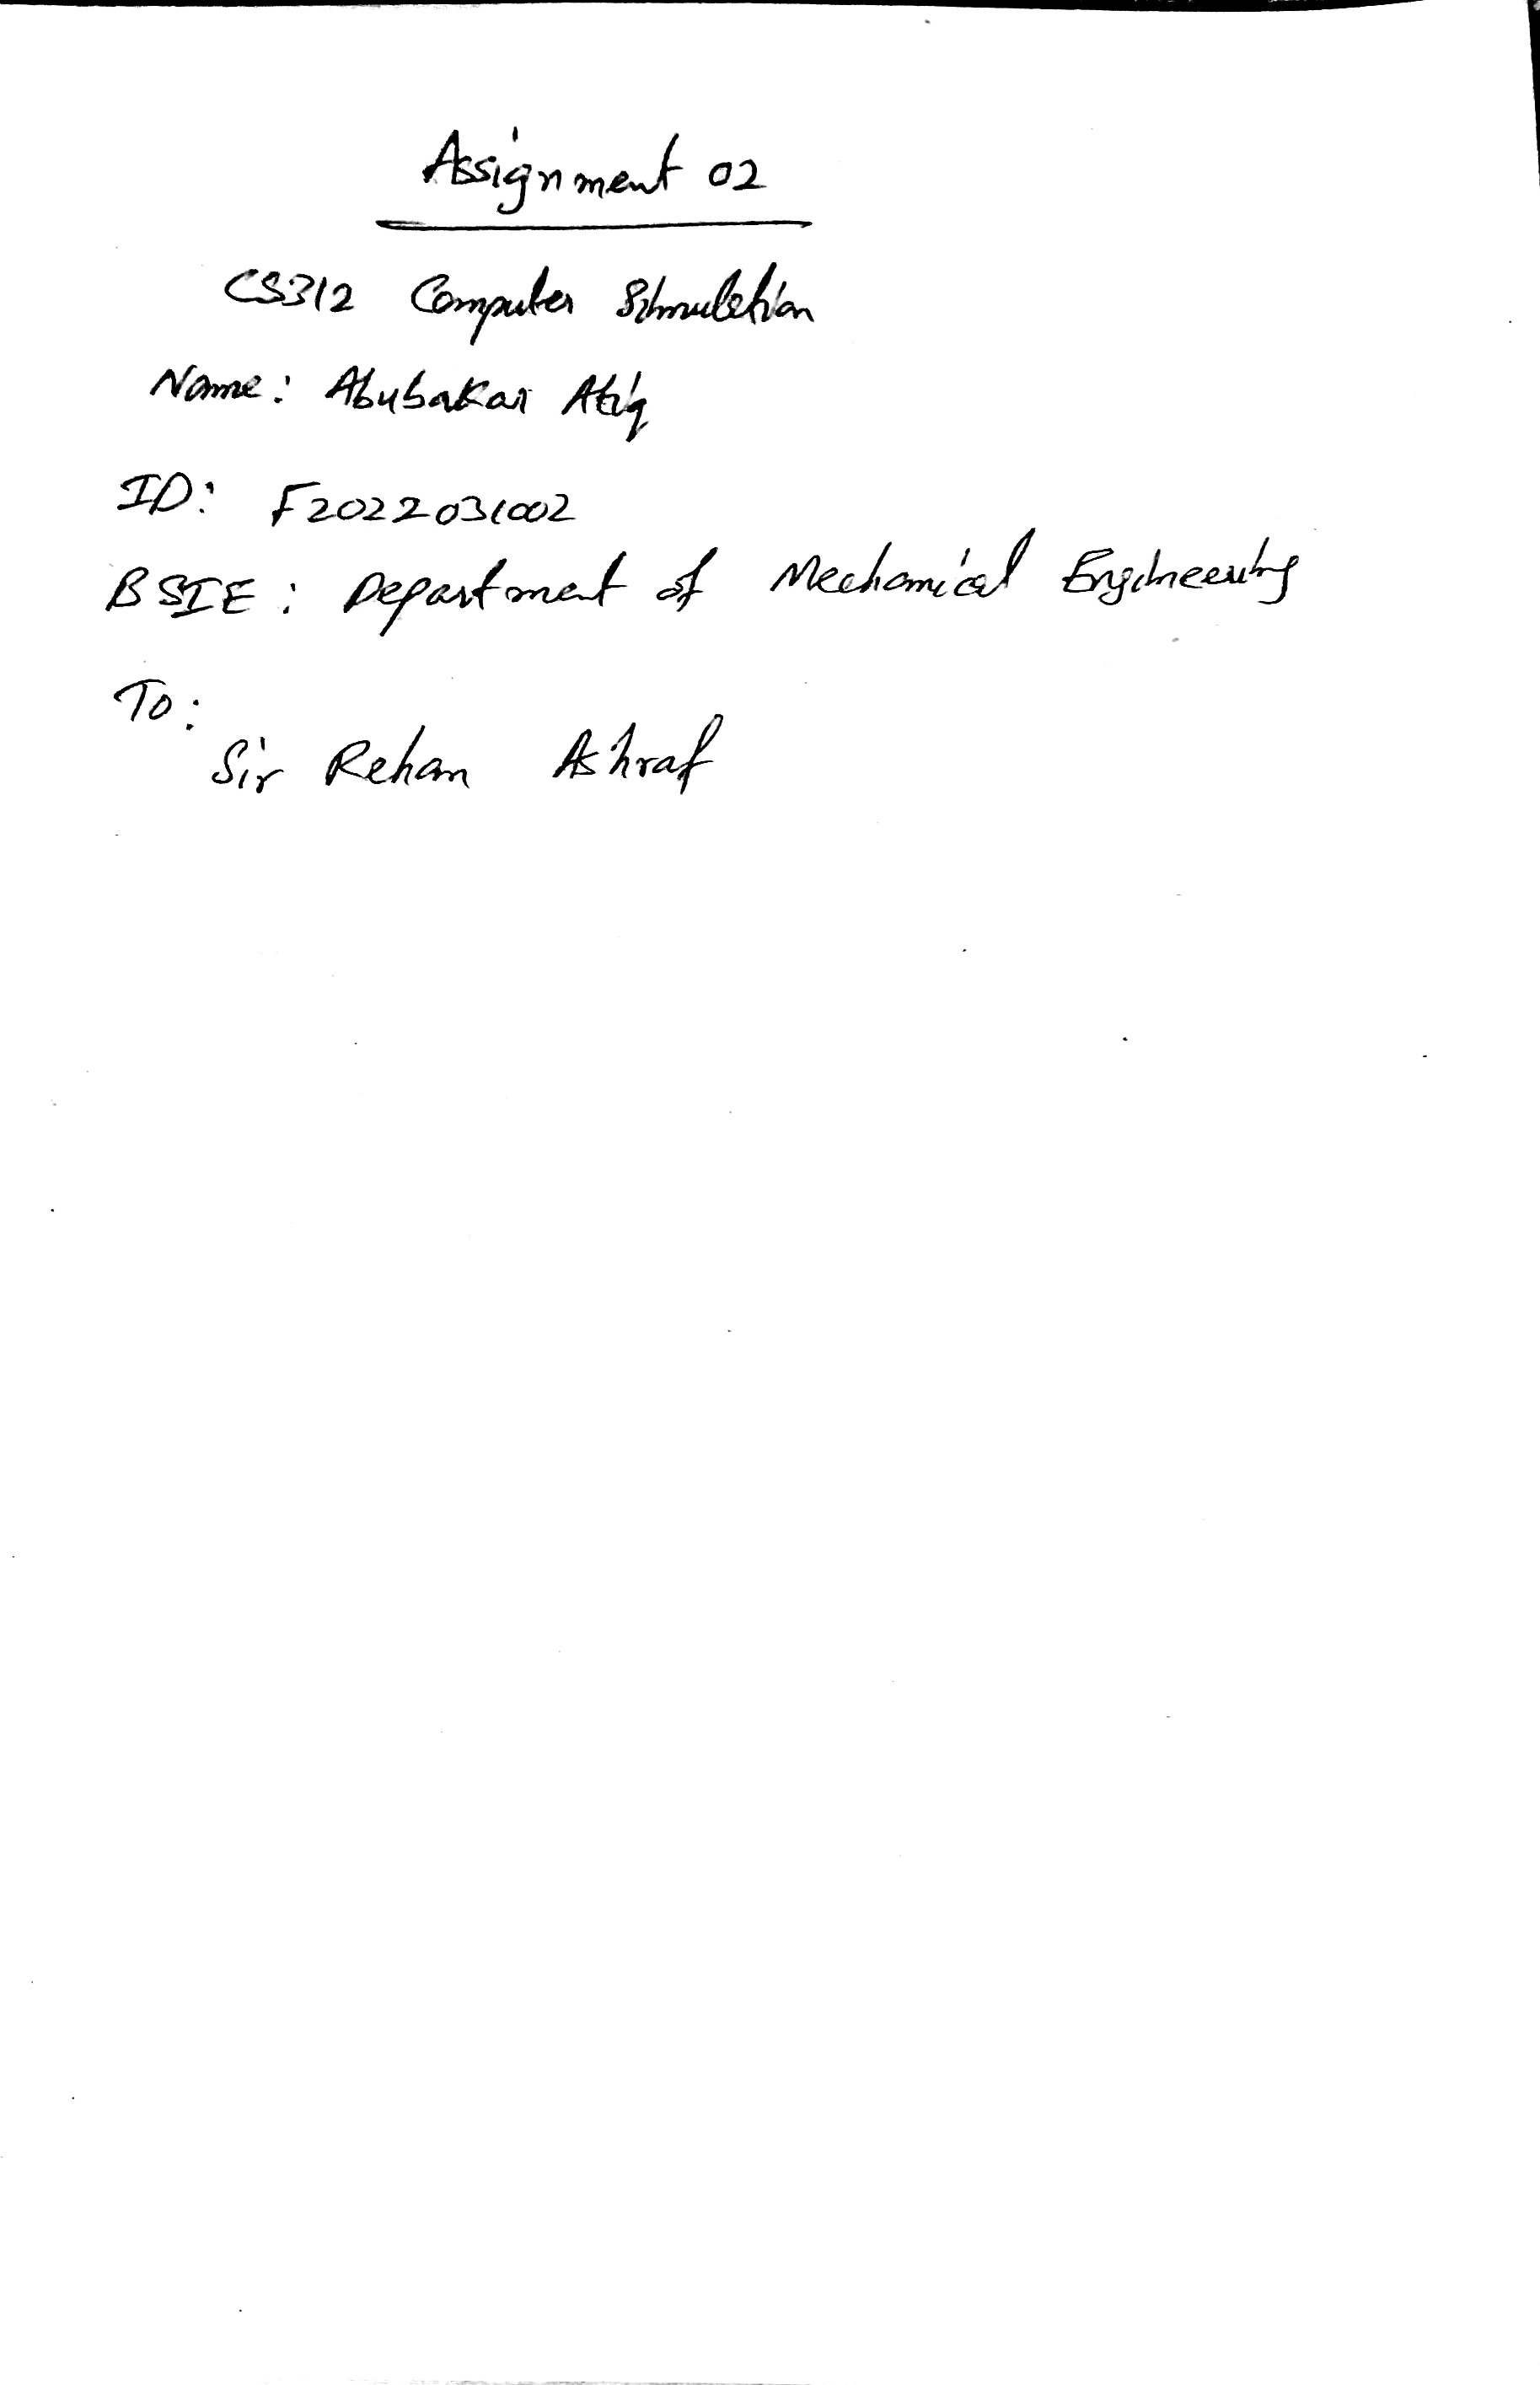 Assignment 02
CS312 Computer Simulation
Name: Abubakar Atiq
ID: F2022031002
BSIE: Department of Mechanical Engineering
To:
Sir Rehan Ashraf